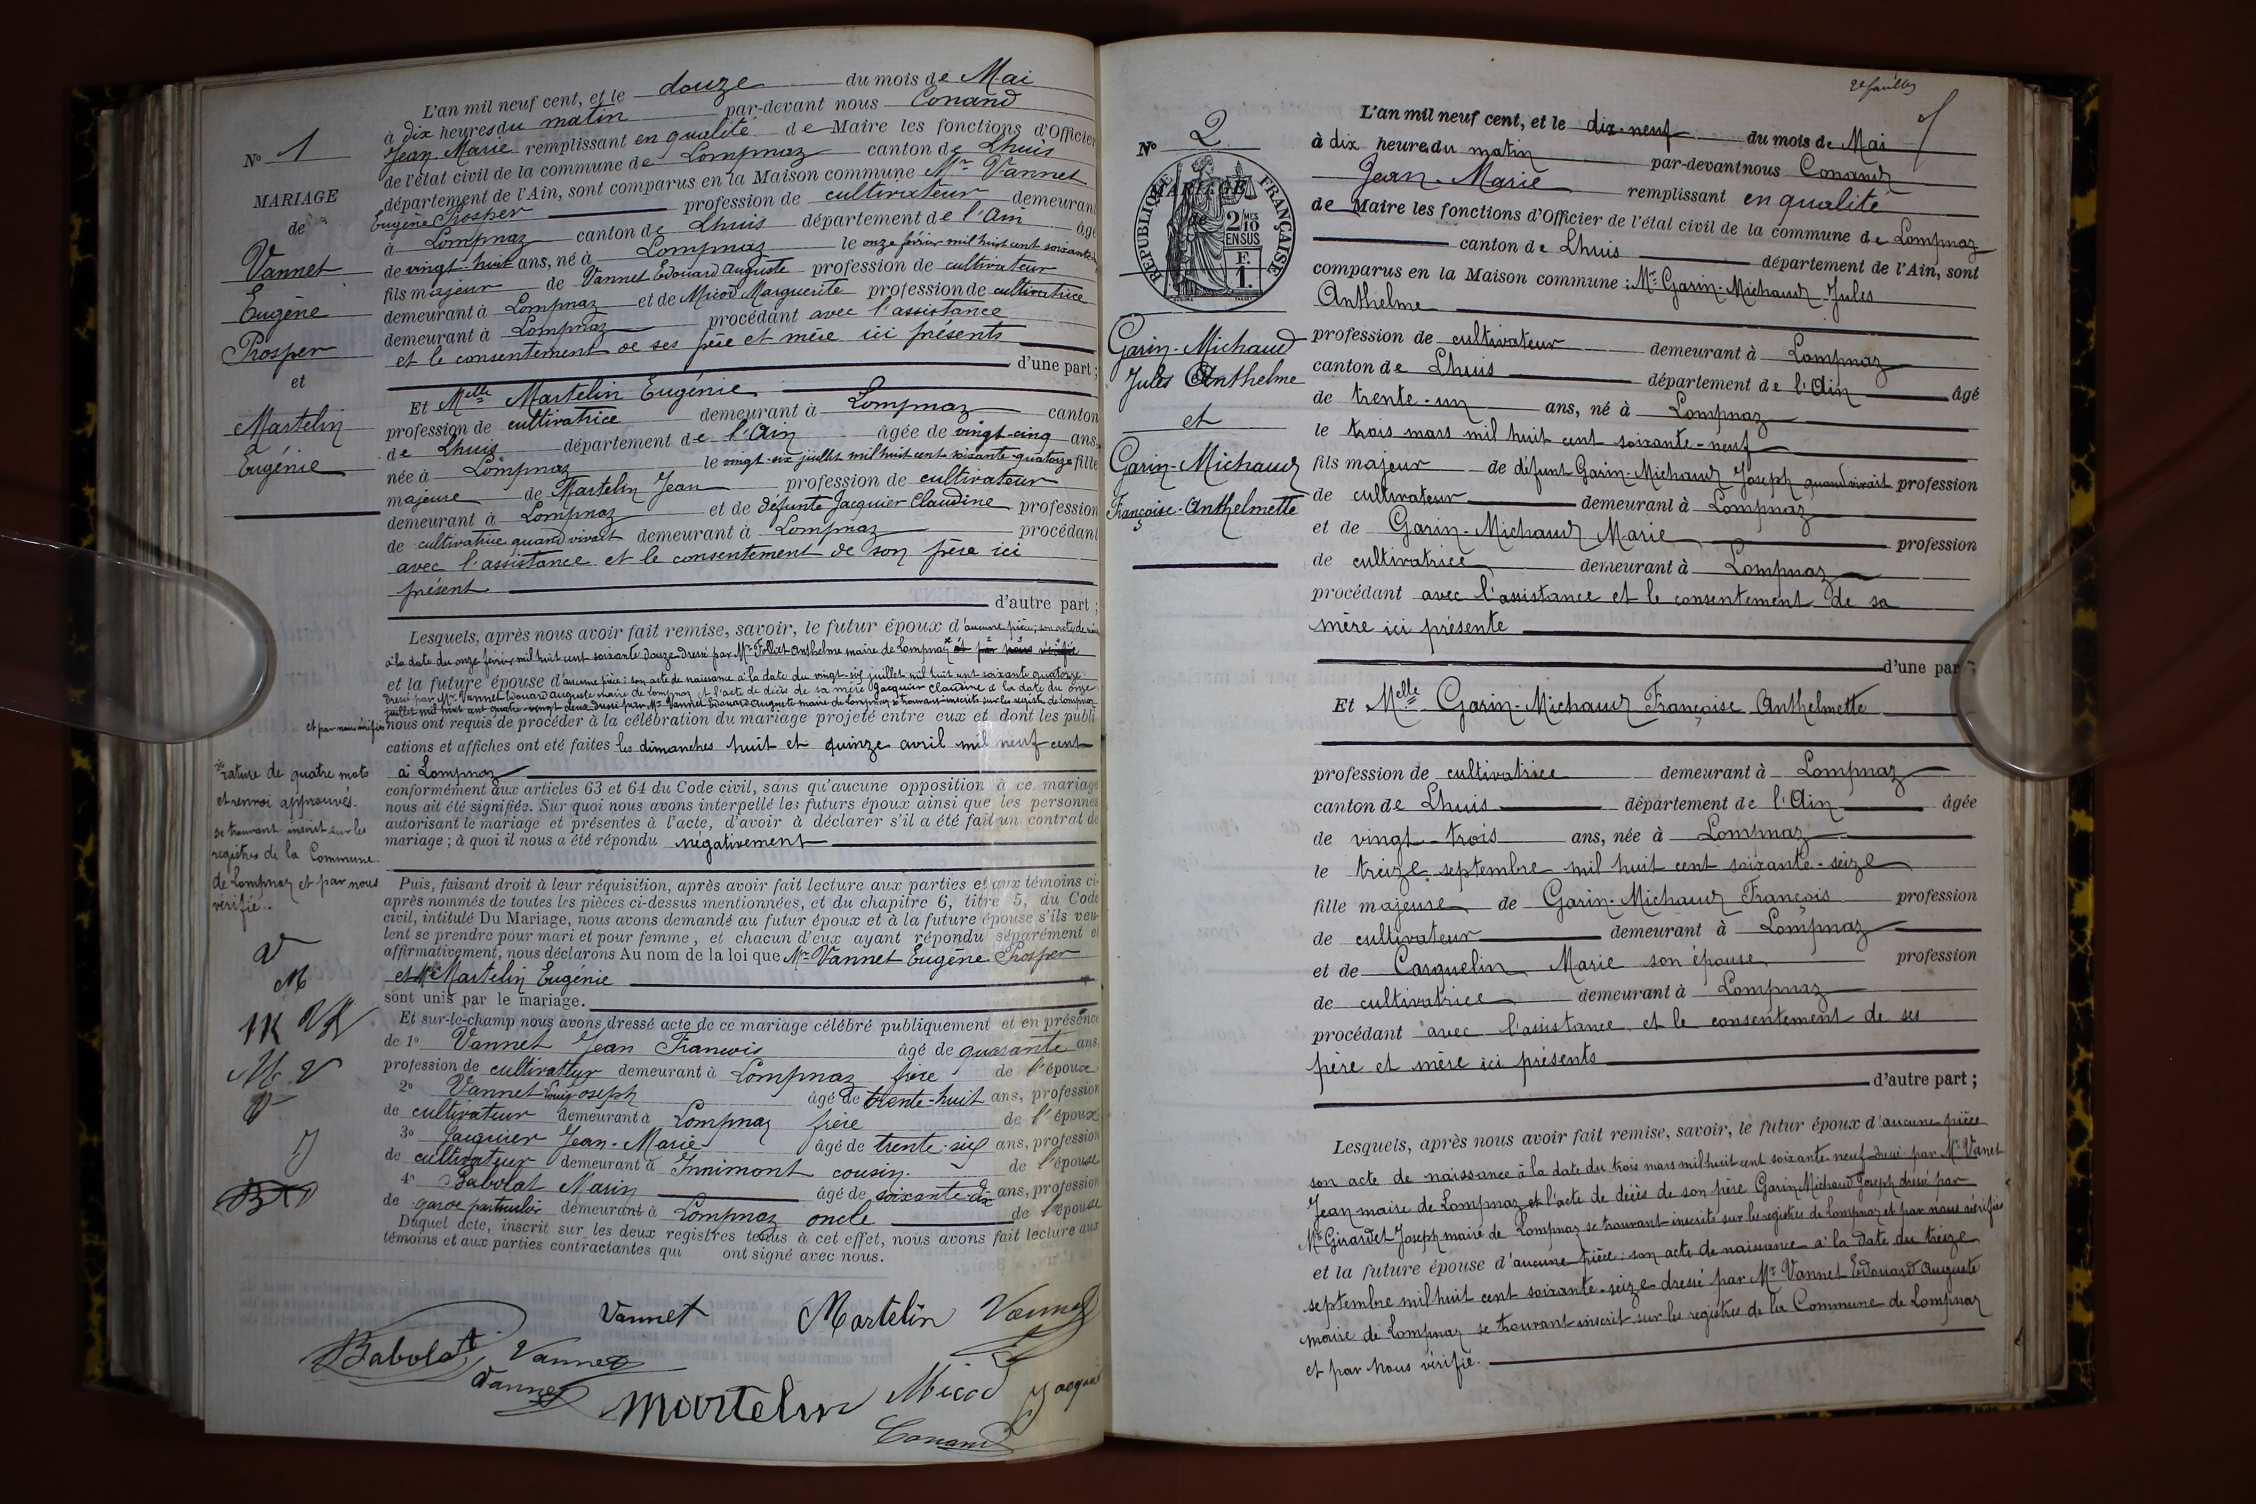 L'an mil neuf cent, et le douze du mois de Mai
à dix heures du matin par-devant nous Conand
Jean Marie remplissant en qualité de Maire les fonctions d'Officier
de l'état civil de la commune de Lompnaz canton de Lhuis
département de l'Ain, sont comparus en la Maison commune Mr Vannet
Eugène Prosper profession de cultivateur demeurant
à Lompnaz canton de Lhuis département de l'Ain âgé
de vingt-huit ans, né à Lompnaz le onze février mil huit cent soixante
fils majeur de Vannet Edouard Auguste profession de cultivateur
demeurant à Lompnaz et de Micod Marguerite profession de cultivatrice
demeurant à Lompnaz procédant avec l'assistance
et le consentement de ses père et mère ici présents
d'une part;
Et Melle Martelin Eugénie
profession de cultivatrice demeurant à Lompnaz canton
de Lhuis département de l'Ain âgée de vingt-cinq ans,
née à Lompnaz le vingt-six juillet mil huit cent soixante-quatorze fille
majeure de Martelin Jean profession de cultivateur
demeurant à Lompnaz et de défunte Jacquier Claudine profession
de cultivatrice quand vivait demeurant à Lompnaz procédant
avec l'assistance et le consentement de son père ici
présent
d'autre part;
Lesquels, après nous avoir fait remise, savoir, le futur époux d'aucune pièce; son acte de
à la date du onze février mil huit cent soixante douze dressé par Mr Anthelme maire de Lompnaz et par nous vérifié
et la future épouse d'aucune pièce: son acte de naissance à la date du vingt-six juillet mil huit cent soixante quatorze
dressé par Mr Vannet Edouard Auguste maire de Lompnaz et l'acte de décès de sa mère Jacquier Claudine à la date du onze
juillet mil huit cent quatre-vingt deux dressé par Mr Vannet Edouard Auguste maire de Lompnaz se trouvant inscrits sur les registres de Lompnaz
nous ont requis de procéder à la célébration du mariage projeté entre eux et dont les publi
cations et affiches ont été faites les dimanches huit et quinze avril mil neuf cent
à Lompnaz
conformément aux articles 63 et 64 du Code civil, sans qu'aucune opposition à ce mariage
nous ait été signifiée. Sur quoi nous avons interpellé les futurs époux ainsi que les personnes
autorisant le mariage et présentes à l'acte, d'avoir à déclarer s'il a été fait un contrat de
mariage; à quoi il nous a été répondu négativement
Puis, faisant droit à leur réquisition, après avoir fait lecture aux parties et aux témoins ci-
après nommés de toutes les pièces ci-dessus mentionnées, et du chapitre 6, titre 5, du Code
civil, intitulé Du Mariage, nous avons demandé au futur époux et à la future épouse s'ils veu-
lent se prendre pour mari et pour femme, et chacun d'eux ayant répondu séparément et
affirmativement, nous déclarons Au nom de la loi que Mr Vannet Eugène Prosper
et Melle Martelin Eugénie
sont unis par le mariage.
Et sur-le-champ nous avons dressé acte de ce mariage célébré publiquement et en présence
de 1º Vannet Jean François âgé de quarante ans
profession de cultivateur demeurant à Lompnaz frère de l'époux
2º Vannet Louis Joseph âgé de trente-huit ans, profession
de cultivateur demeurant à Lompnaz frère de l'époux
3º Jacquier Jean-Marie âgé de trente-six ans, profession
de cultivateur demeurant à Innimont cousin de l'épouse
4º Babolat Marin âgé de soixante-dix ans, profession
de garde particulier demeurant à Lompnaz oncle de l'épouse
Duquel acte, inscrit sur les deux registres tenus à cet effet, nous avons fait lecture aux
témoins et aux parties contractantes qui ont signé avec nous.
Vannet Martelin Vannet
Babolat Vannet
Vannet Martelin Micod Jacquier
Conand
Nº 1
MARIAGE
de
Vannet
Eugène
Prosper
et
Martelin
Eugénie
et par nous vérifiés
rature de quatre mots
et renvoi approuvés.
se trouvant inscrit sur les
registres de la Commune
de Lompnaz et par nous
vérifié.
2e feuillet
Nº 2
RÉPUBLIQUE FRANÇAISE
MARIAGE
de
2/10 MES
EN SUS
F.
1.
Garin-Michaud
Jules Anthelme
et
Garin-Michaud
Françoise-Anthelmette
L'an mil neuf cent, et le dix-neuf du mois de Mai
à dix heures du matin par-devant nous Conand
Jean-Marie remplissant en qualité
de Maire les fonctions d'Officier de l'état civil de la commune de Lompnaz
canton de Lhuis département de l'Ain, sont
comparus en la Maison commune: Mr Garin-Michaud Jules
Anthelme
profession de cultivateur demeurant à Lompnaz
canton de Lhuis département de l'Ain âgé
de trente-un ans, né à Lompnaz
le trois mars mil huit cent soixante-neuf
fils majeur de défunt Garin-Michaud Joseph quand vivait profession
de cultivateur demeurant à Lompnaz
et de Garin-Michaud Marie profession
de cultivatrice demeurant à Lompnaz
procédant avec l'assistance et le consentement de sa
mère ici présente
d'une part;
Et Melle Garin-Michaud Françoise Anthelmette
profession de cultivatrice demeurant à Lompnaz
canton de Lhuis département de l'Ain âgée
de vingt-trois ans, née à Lompnaz
le treize septembre mil huit cent soixante-seize
fille majeure de Garin-Michaud François profession
de cultivateur demeurant à Lompnaz
et de Carquelin Marie son épouse profession
de cultivatrice demeurant à Lompnaz
procédant avec l'assistance et le consentement de ses
père et mère ici présents
d'autre part;
Lesquels, après nous avoir fait remise, savoir, le futur époux d'aucune pièce
son acte de naissance à la date du trois mars mil huit cent soixante-neuf dressé par Mr Vanet
Jean maire de Lompnaz et l'acte de décès de son père Garin Michaud Joseph dressé par
Mr Girardet Joseph maire de Lompnaz se trouvant inscrits sur les registres de Lompnaz et par nous vérifiés
et la future épouse d'aucune pièce: son acte de naissance à la date du treize
septembre mil huit cent soixante-seize dressé par Mr Vannet Edouard Auguste
maire de Lompnaz se trouvant inscrit sur les registres de la Commune de Lompnaz
et par nous vérifié.